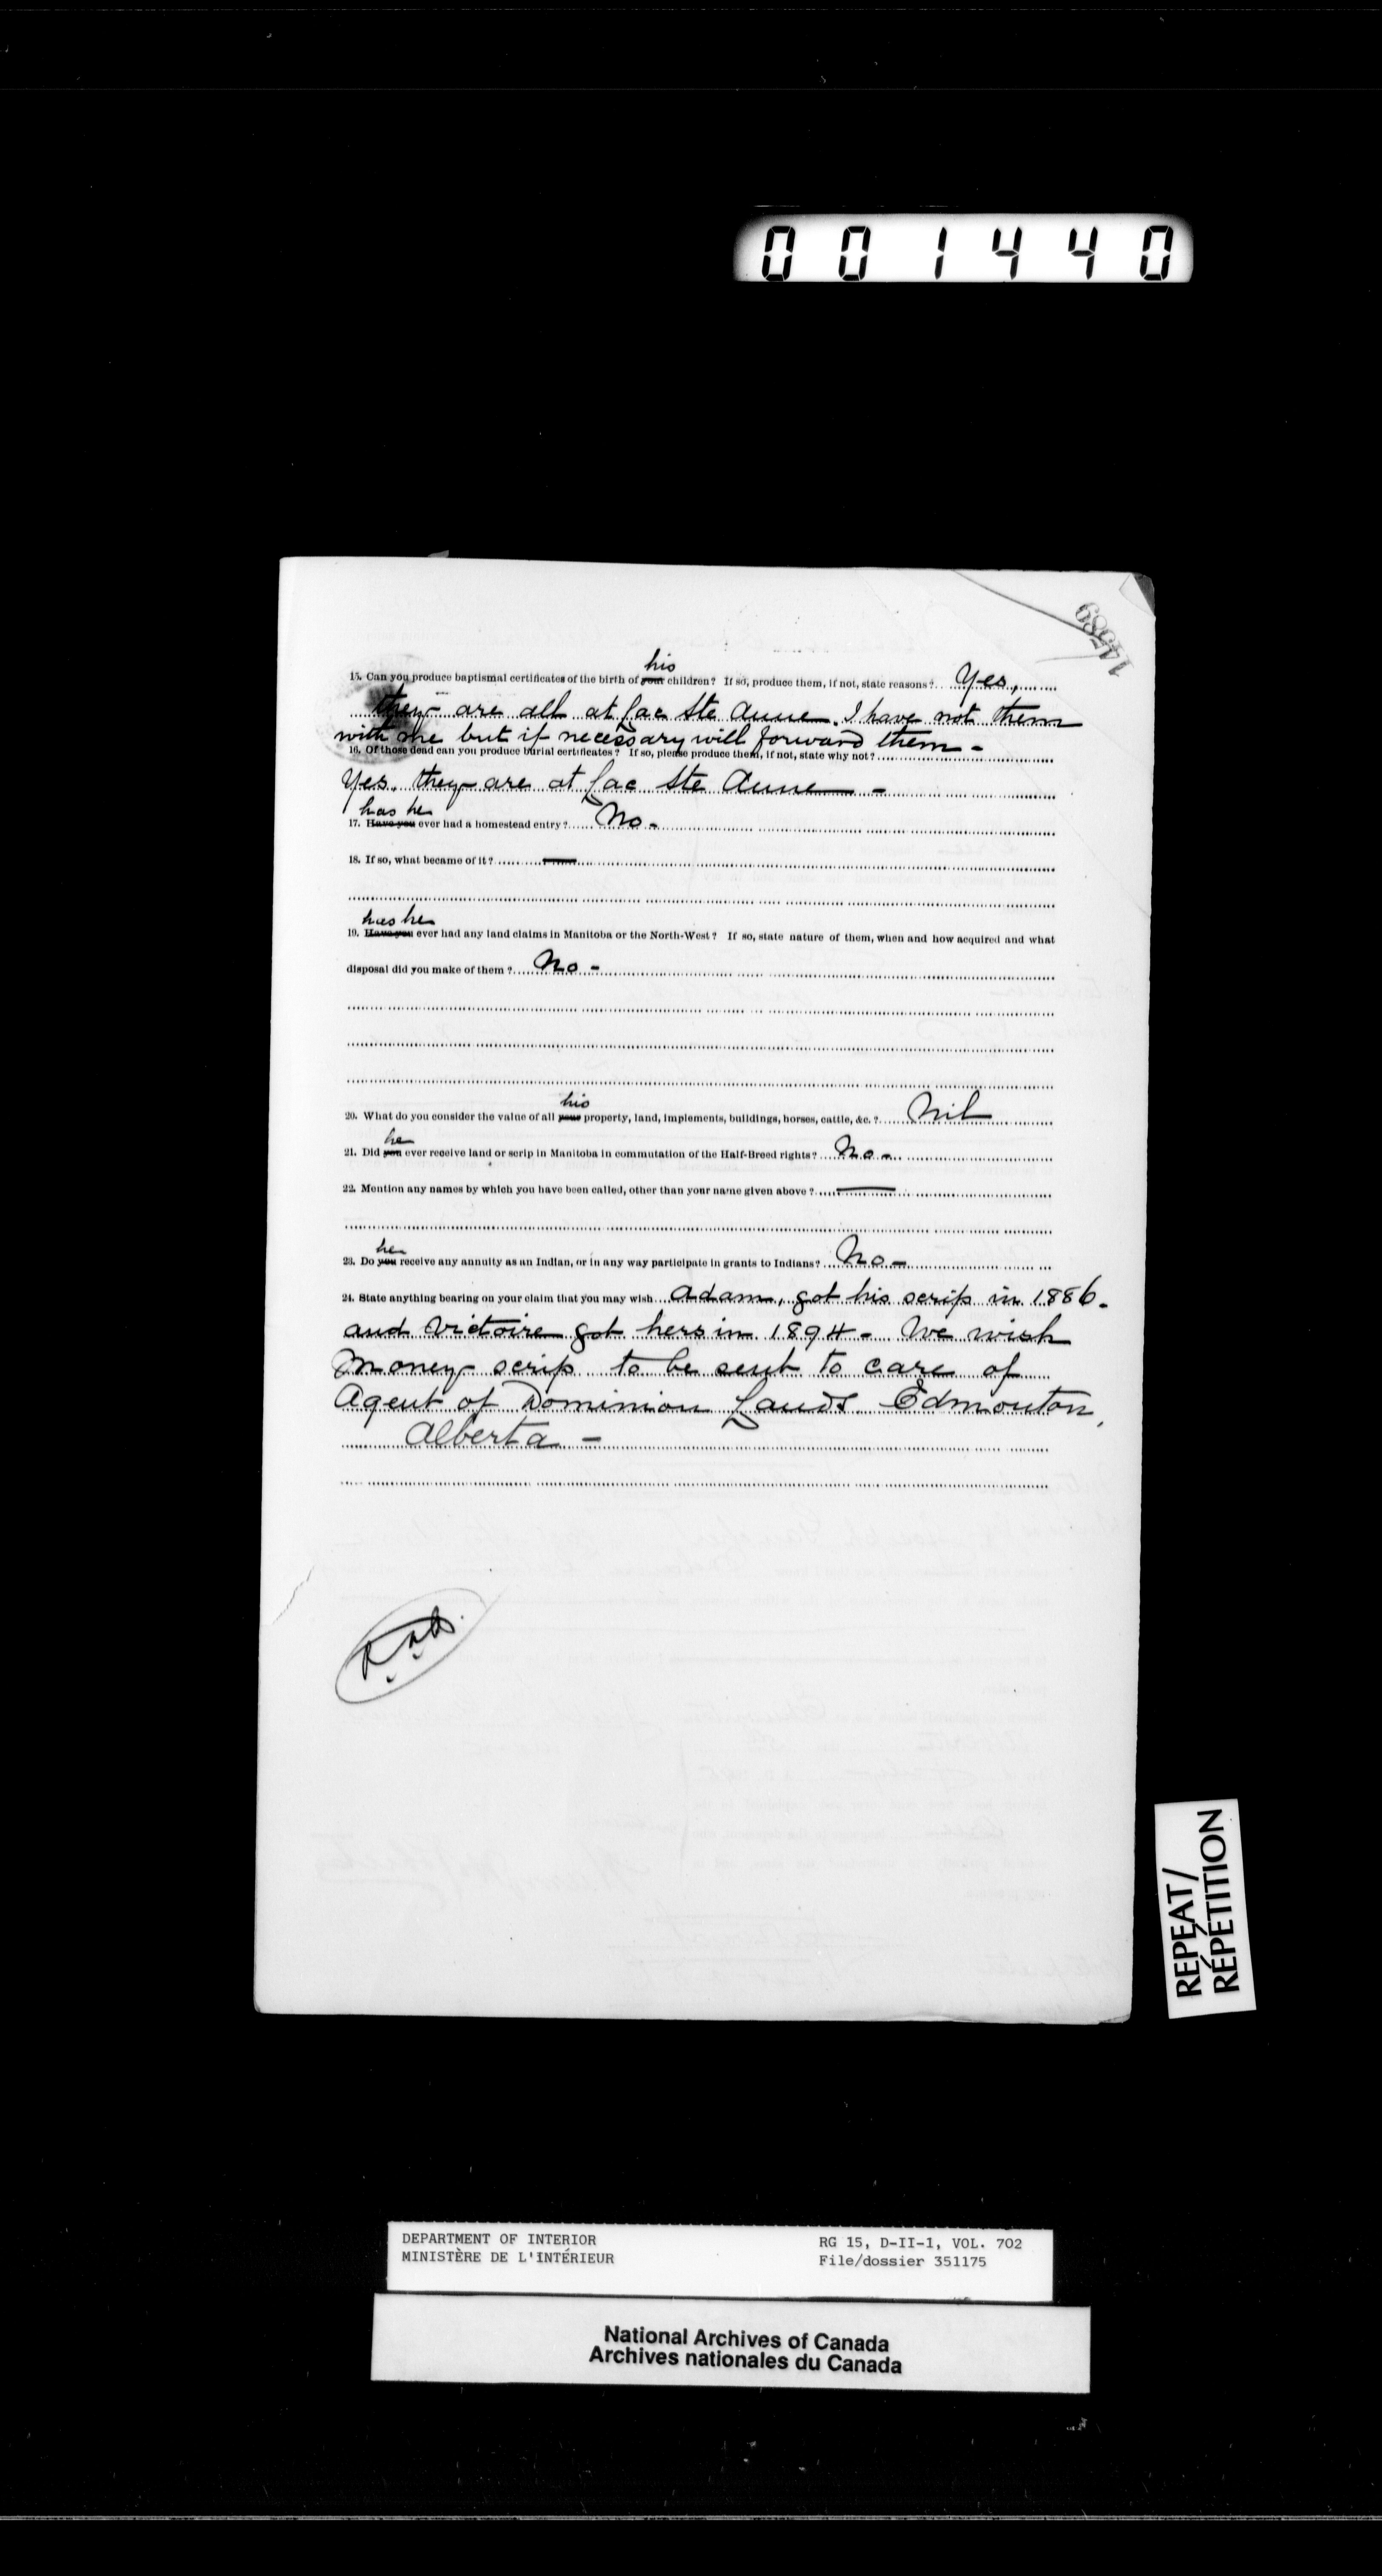 001440
14589
his
15. Can you produce baptismal certificates of the birth of your children? If so, produce them, if not, state reasons? Yes,
they are all at Lac Ste Anne. I have not them
with me but if necessary will forward them -
16. Of those dead can you produce burial certificates? If so, please produce them, if not, state why not?
Yes. they are at Lac Ste Anne -
has he
17. Have you ever had a homestead entry? No -
18. If so, what became of it? —
has he
19. Have you ever had any land claims in Manitoba or the North-West? If so, state nature of them, when and how acquired and what
disposal did you make of them? No -
his
20. What do you consider the value of all your property, land, implements, buildings, horses, cattle, &c.? Nil
he
21. Did you ever receive land or scrip in Manitoba in commutation of the Half-Breed rights? No -
22. Mention any names by which you have been called, other than your name given above? —
he
23. Do you receive any annuity as an Indian, or in any way participate in grants to Indians? No -
24. State anything bearing on your claim that you may wish Adam, got his scrip in 1886.
and Victoire got hers in 1894 - We wish
Money scrip to be sent to care of
Agent of Dominion Lands Edmonton,
Alberta -
REPEAT/
RÉPÉTITION
DEPARTMENT OF INTERIOR RG 15, D-II-1, VOL. 702
MINISTÈRE DE L'INTÉRIEUR File/dossier 351175
National Archives of Canada
Archives nationales du Canada